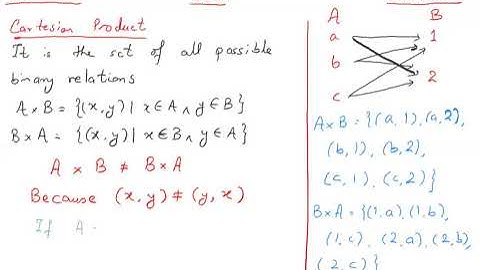 Cartesian Product
It is the set of all possible
binary relations
A × B = {(x, y) | x ∈ A ∧ y ∈ B}
B × A = {(x, y) | x ∈ B ∧ y ∈ A}
A × B ≠ B × A
Because (x, y) ≠ (y, x)
If A
A B
a 1
b
2
c
A×B = {(a, 1), (a, 2),
(b, 1), (b, 2),
(c, 1), (c, 2)}
B×A = {(1, a), (1, b),
(1, c), (2, a), (2, b),
(2, c)}